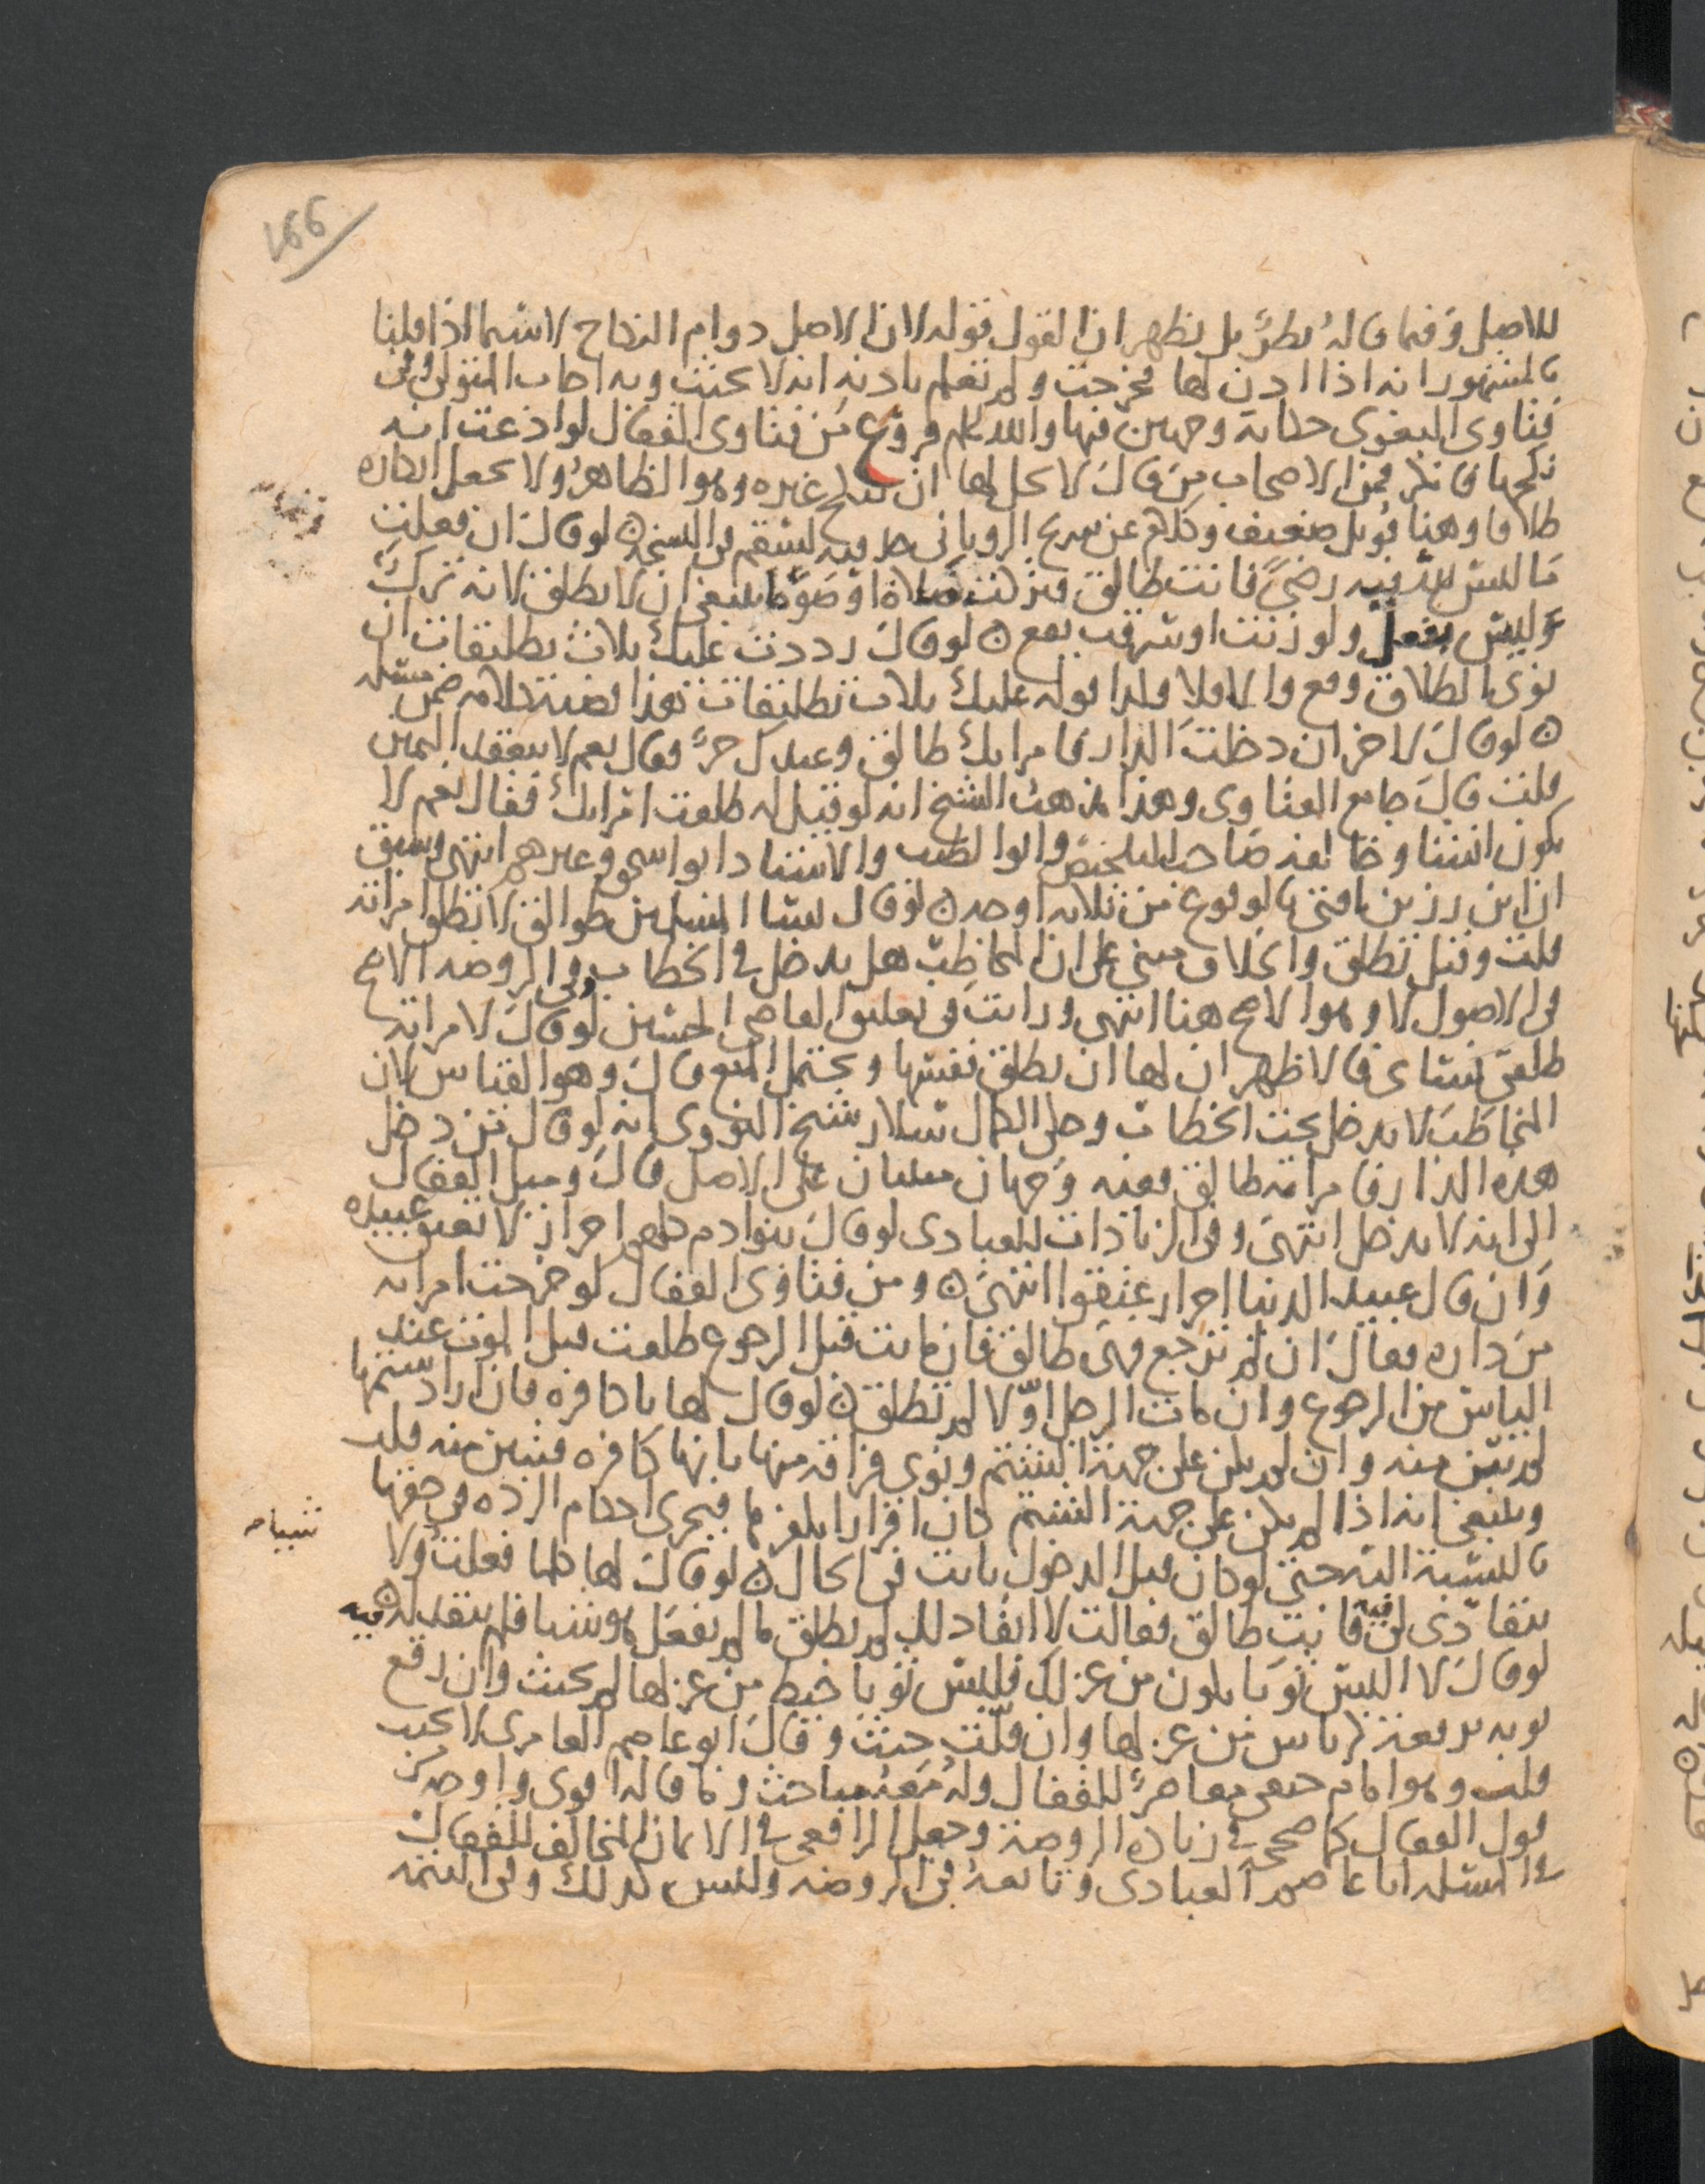 166
للاصل وفيما قاله نظر بل يظهر ان القول قوله لان الاصل دوام النكاح لاسيما اذا قلنا
بالمشهور انه اذا اذن لها فخرجت ولم تعلم باذنه انه لا يحنث وبه اجاب المتولى وفى
فتاوى البغوى حكاية وجهين فيها والله اعلم فروع من فتاوى القفال لو ادعت انه
نكحها فانكر فمن الاصحاب من قال لا يحل لها ان تنكح غيره وهو الظاهر ولا يجعل انكاره
طلاقا وهنا قوبل ضعيف وكلام عن شريح الرويانى لو قال ان فعلت
ما ليس لله فيه رضى فانت طالق فتركت صلاة او صوما ينبغى ان لا تطلق لانه ترك
وليس بفعل ولو زنت او سرقت يقع ه لو قال رددت عليك ثلاث تطليقات ان
نوى الطلاق وقع والا فلا ولذا قوله عليك ثلاث تطليقات هذا قضية كلامه ضمن مسئلة
ه لو قال لاخر ان دخلت الدار فامراتك طالق وعبدك حر فقال نعم لا ينعقد اليمين
قلت قال جامع الفتاوى وهذا مذهب الشيخ انه لو قيل له طلقت امراتك فقال نعم لا
يكون انشا وخالفه صاحب الملخص وابو الطيب والاستاد ابو اسحق وغيرهم انتهى وسبق
ان ابن رزين افتى بالوقوع من ثلاثة اوجه ه لو قال نسا المسلمين طوالق لا تطلق امراته
قلت وقيل تطلق والخلاف مبنى على ان المخاطب هل يدخل فى الخطاب وفى الروضه الاصح
فى الاصول لا وهو الاصح هنا انتهى ورايت فى تعليق القاضى الحسين لو قال لامراته
طلقى نساى فالاظهر ان لها ان تطلق نفسها ويحتمل المنع قال وهو القياس لان
المخاطب لا يدخل تحت الخطاب وحكى الكمال سلار شيخ النووى انه لو قال من دخل
هذه الدار فامراته طالق ففيه وجهان مبنيان على الاصل قال وميل القفال
الى انه لا يدخل انتهى وفى الزيادات للعبادى لو قال بنو ادم كلهم احرار لا تعتق عبيده
وان قال عبيد الدنيا احرار عتقوا انتهى ه ومن فتاوى القفال لو خرجت امراته
من داره فقال ان لم ترجع فهى طالق فان ماتت قبل الرجوع طلقت قبل الموت عند
الياس من الرجوع وان مات الرجل اولا لم تطلق ه لو قال لها يا كافره فان اراد شتمها
لم تبن منه وان لم يكن على جهة الشتم ونوى فراقه منها بانها كافره فتبين منه قلت
وينبغى انه اذا لم يكن على جهة الشتم كان اقرارا بكفرها فيجرى احكام الرده فى حقها
بالنسبة اليه حتى لو كان قبل الدخول بانت فى الحال ه لو قال لها كلما فعلت ولا
فيه فانت طالق فقالت لا انقاد لك لم تطلق ما لم يفعل هو شيا فلم تنقد له فيه ه
لو قال لا البس ثوبا يكون من غزلك فلبس ثوبا خيط من غزلها لم يحنث وان رقع
ثوبه برقعة كرباس من غزلها وان قلت حنث وقال ابو عاصم العامرى لا يحنث
قلت وهو امام حنفى معاصر للقفال وله معه مباحث وما قاله اقوى واوضح
قول القفال كما صحح فى زيادة الروضة وجعل الرافعى فى الايمان المخالف للقفال
فى المسئلة ابا عاصم العبادى وتابعه فى الروضه وليس كذلك وفى التتمه